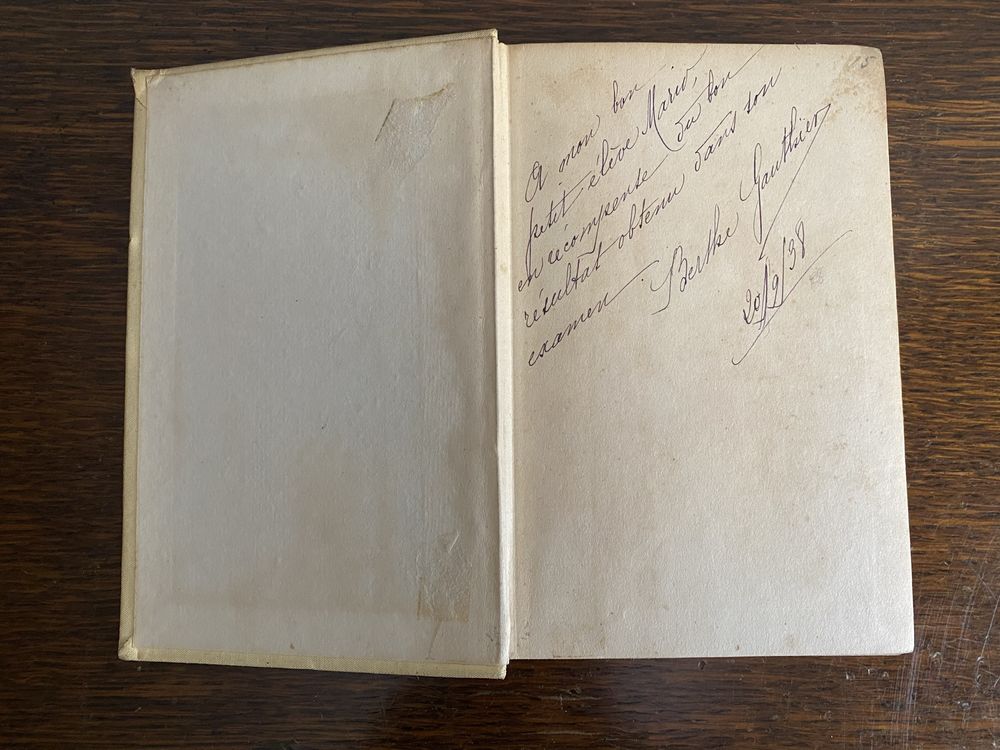 A mon bon
petit élève Mario,
en récompense du bon
résultat obtenu dans son
examen
Berthe Gauthier
20/2/38
15